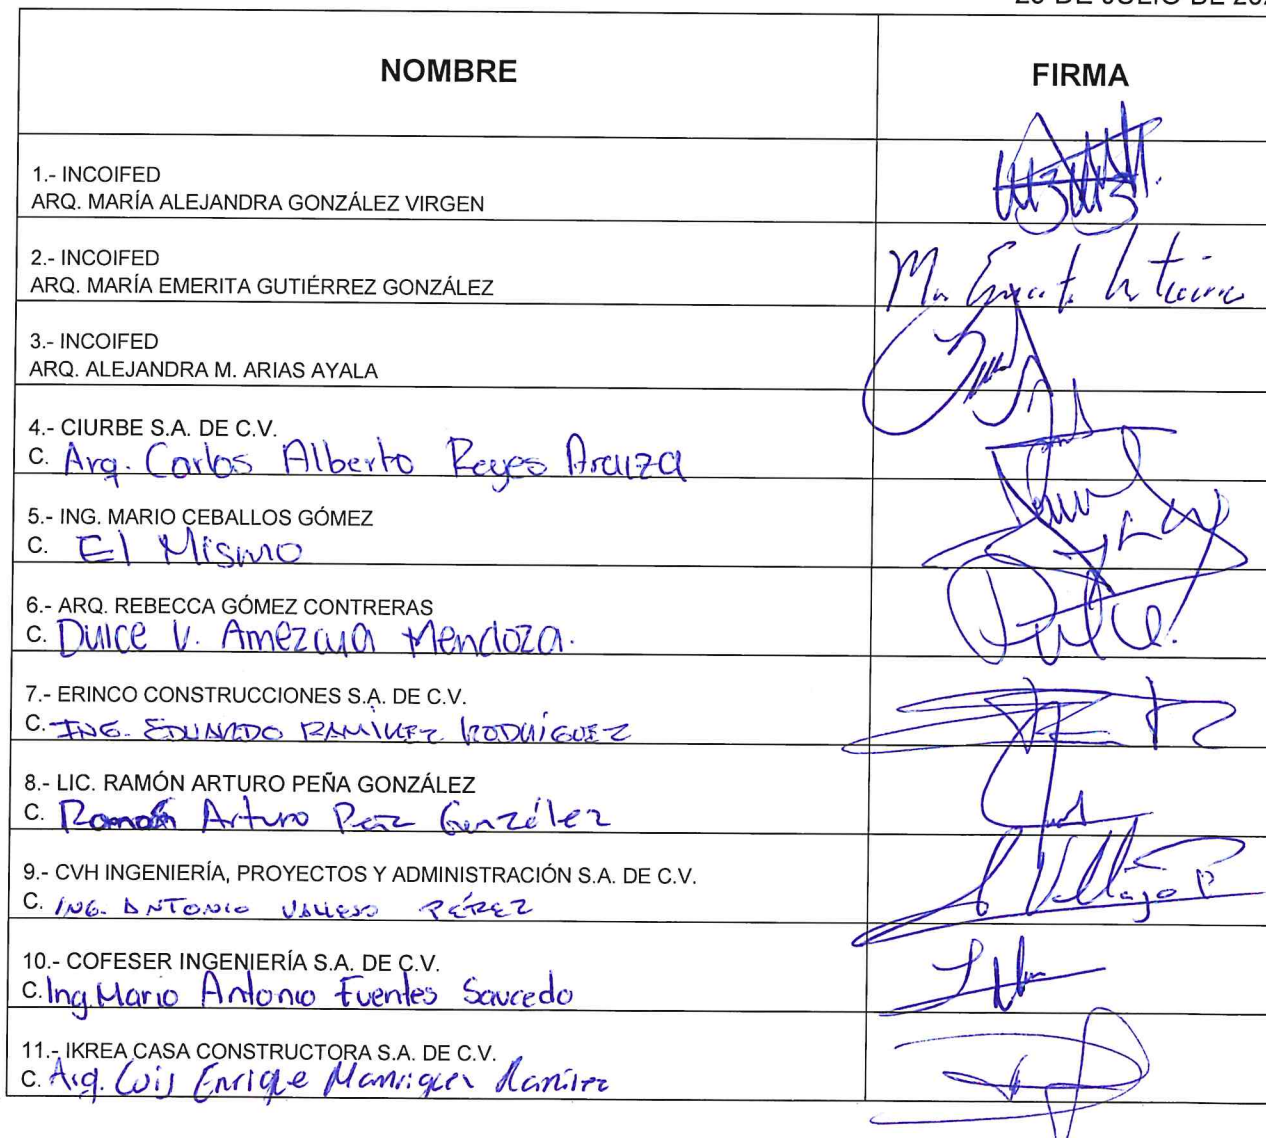 DE JULIO DE
NOMBRE
FIRMA
1.- INCOIFED
ARQ. MARÍA ALEJANDRA GONZÁLEZ VIRGEN
2.- INCOIFED
ARQ. MARÍA EMERITA GUTIÉRREZ GONZÁLEZ
3.- INCOIFED
ARQ. ALEJANDRA M. ARIAS AYALA
4.- CIURBE S.A. DE C.V.
C. Arq. Carlos Alberto Reyes Araiza
5.- ING. MARIO CEBALLOS GÓMEZ
C. El Mismo
6.- ARQ. REBECCA GÓMEZ CONTRERAS
C. Dulce V. Amezcua Mendoza.
Dulce.
7.- ERINCO CONSTRUCCIONES S.A. DE C.V.
C. ING. EDUARDO RAMÍREZ RODRÍGUEZ
8.- LIC. RAMÓN ARTURO PEÑA GONZÁLEZ
C. Ramón Arturo González
9.- CVH INGENIERÍA, PROYECTOS Y ADMINISTRACIÓN S.A. DE C.V.
C. ING. ANTONIO VALLEJO PÉREZ
Vallejo P
10.- COFESER INGENIERÍA S.A. DE C.V.
C. Ing Mario Antonio Fuentes Saucedo
11.- IKREA CASA CONSTRUCTORA S.A. DE C.V.
C. Arq. Luis Enrique Manriquez Ramirez